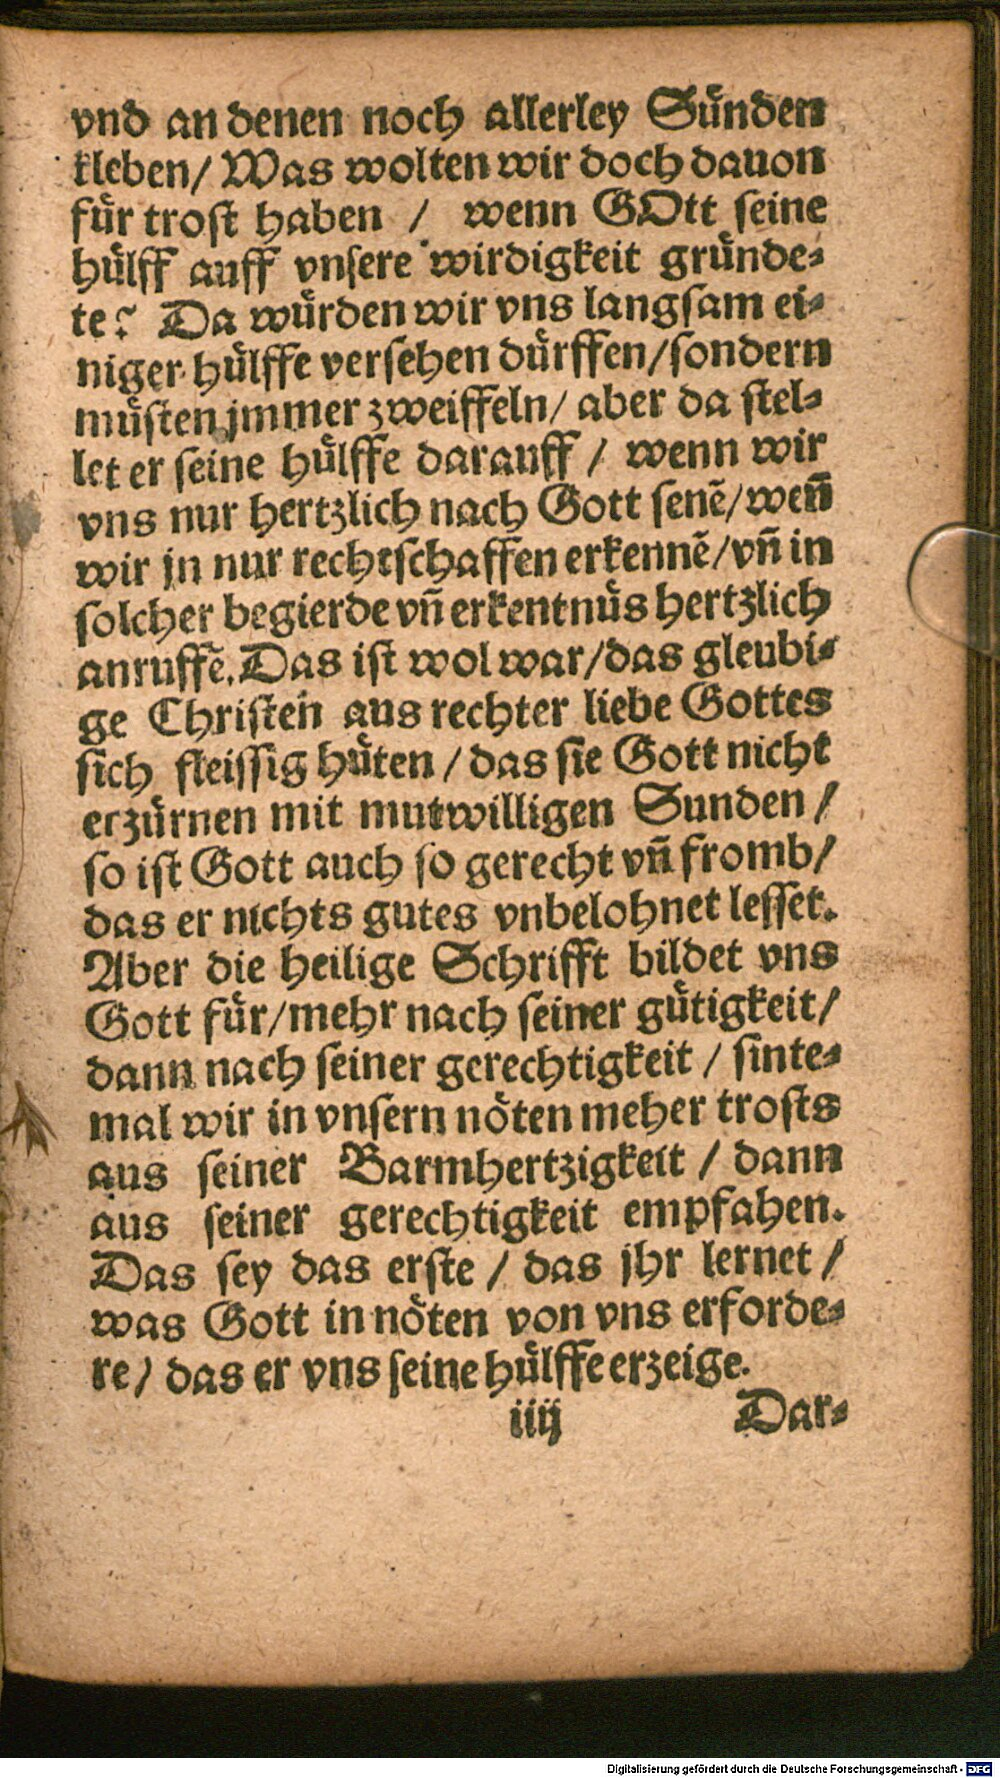 vnd an denen noch allerley Sünden
kleben/ Was wolten wir doch dauon
für trost haben / wenn GOtt seine
hülff auff vnsere wirdigkeit gründe-
te? Da würden wir vns langsam ei-
niger hülffe versehen dürffen/sondern
müsten jmmer zweiffeln/ aber da stel-
let er seine hülffe darauff / wenn wir
vns nur hertzlich nach Gott senē/weñ
wir jn nur rechtschaffen erkennē/vñ in
solcher begierde vñ erkentnüs hertzlich
anruffē. Das ist wol war/das gleubi-
ge Christen aus rechter liebe Gottes
sich fleissig hüten / das sie Gott nicht
erzürnen mit mutwilligen Sunden /
so ist Gott auch so gerecht vñ fromb/
das er nichts gutes vnbelohnet lesset.
Aber die heilige Schrifft bildet vns
Gott für/mehr nach seiner gütigkeit/
dann nach seiner gerechtigkeit / sinte-
mal wir in vnsern nöten meher trosts
aus seiner Barmhertzigkeit / dann
aus seiner gerechtigkeit empfahen.
Das sey das erste / das jhr lernet /
was Gott in nöten von vns erforde-
re/ das er vns seine hülffe erzeige.
iiij Dar-
Digitalisierung gefördert durch die Deutsche Forschungsgemeinschaft - DFG